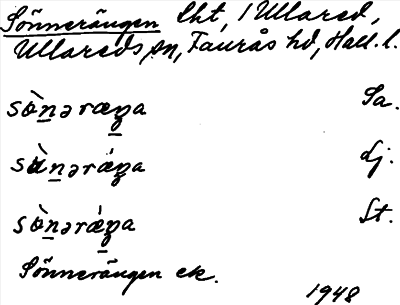 Sönnerängen Lht, 1 Ullared,
Ullareds sn, Faurås hd, Hall. l.
sö̀nəræŋa Sa.
sùnərǽŋa Lj.
sö̀nərǽŋa St.
Sönnerängen ek.
1948